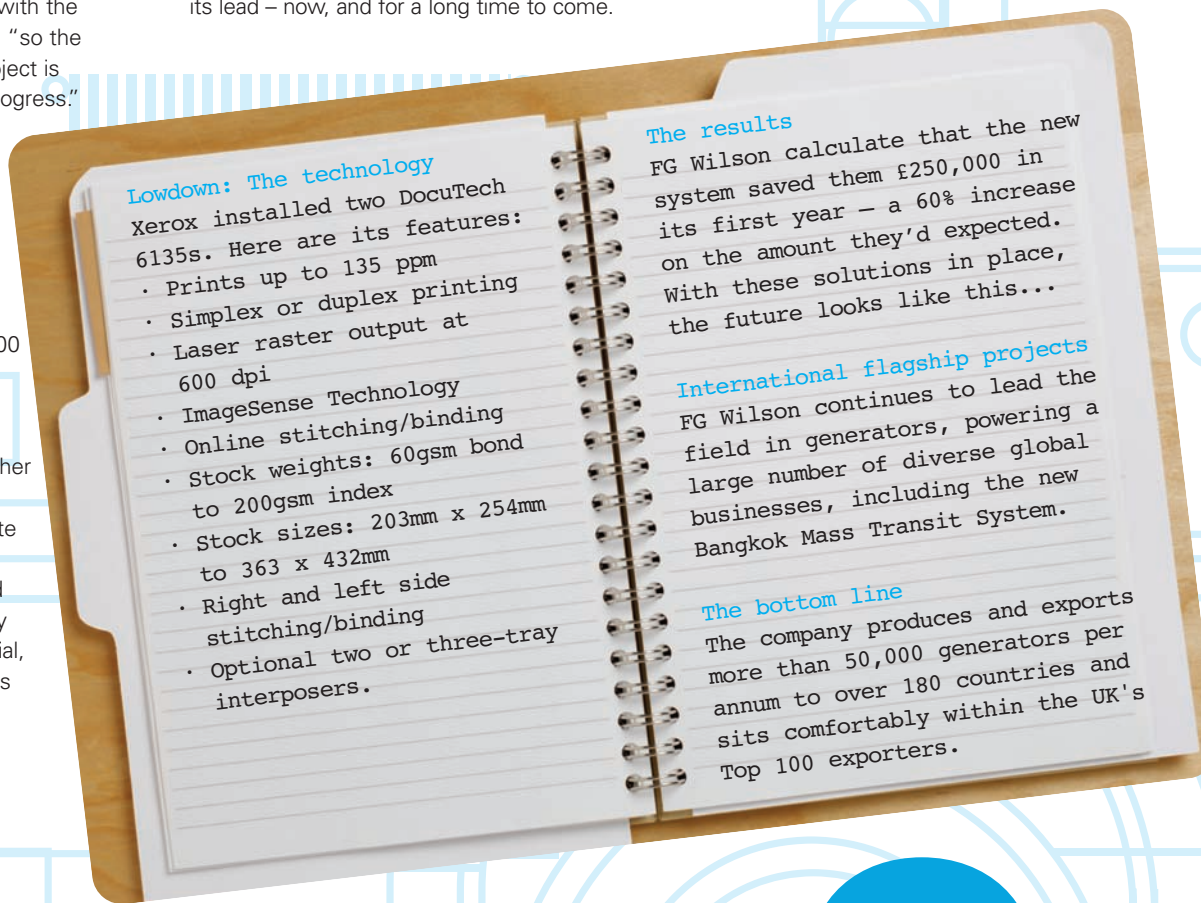 with the
“so the
ject is
ogress.”
00
her
te
d
y
ial,
s
its lead – now, and for a long time to come.
Lowdown: The technology
Xerox installed two DocuTech
6135s. Here are its features:
· Prints up to 135 ppm
· Simplex or duplex printing
· Laser raster output at
600 dpi
· ImageSense Technology
· Online stitching/binding
· Stock weights: 60gsm bond
to 200gsm index
· Stock sizes: 203mm x 254mm
to 363 x 432mm
· Right and left side
stitching/binding
· Optional two or three-tray
interposers.
The results
FG Wilson calculate that the new
system saved them £250,000 in
its first year – a 60% increase
on the amount they’d expected.
With these solutions in place,
the future looks like this...
International flagship projects
FG Wilson continues to lead the
field in generators, powering a
large number of diverse global
businesses, including the new
Bangkok Mass Transit System.
The bottom line
The company produces and exports
more than 50,000 generators per
annum to over 180 countries and
sits comfortably within the UK's
Top 100 exporters.